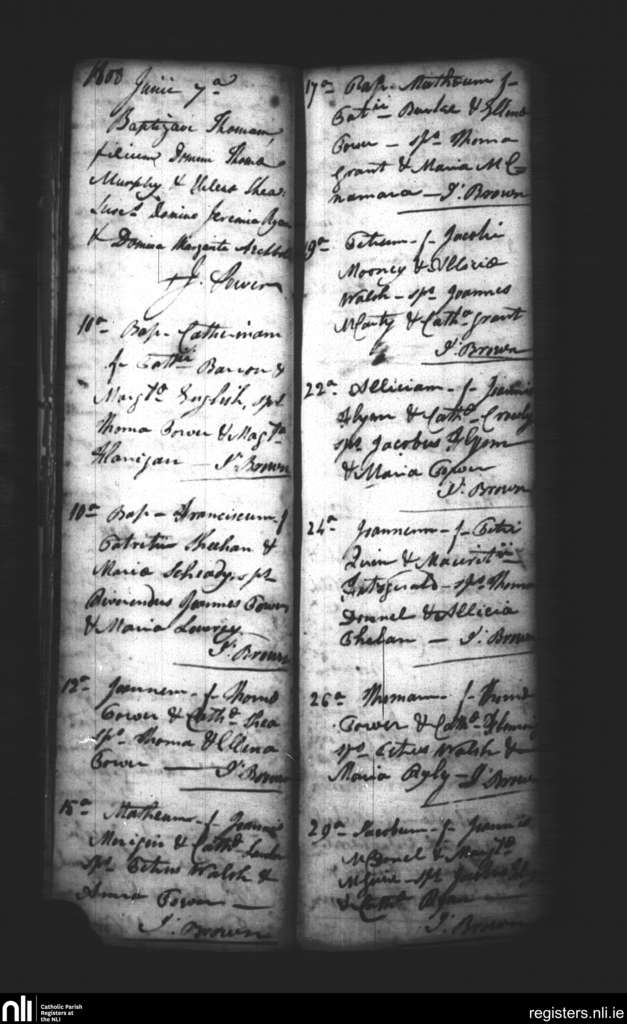 1808
Junii 7a
Baptizavi Thomam,
filium Domini Thoma
Murphy & Shea.
Susc. Domino Jeremia Ryan
& Domina Margarita
J. Power
10a Bap- Catherinam
f- Patii Barron &
Margta English, sps
Thoma Power & Magta
Flanigan - J. Brown
10a Bap- Franciscum- f
Patritii Sheehan &
Maria sps
Reverendus Joannes Power
& Maria Lowrey
J. Brown
12a Joannem- f- Thoma
Power & Catha Shea
sps Thoma & Ellena
Power — J. Brown
15a Matheum- f- Joannis
& Catha
sps Petrus Walsh &
Power —
J. Brown
17a Bap- Matheum f-
Patii- Burke & Ellena
Power - sps Thoma
Grant & Maria M C
namara - J. Brown
19a Petrum- f- Jacobi
Mooney & Allicia
Walsh - sps Joannes
McCarty & Catha Grant
J. Brown
22a Alliciam- f- Joannis
Flynn & Catha
sps Jacobus Flynn
& Maria Power
J. Brown
24a Joannem- f- Petri
&
Fitzgerald - sps Thoma
Donnel & Allicia
Phelan - J. Brown
26a Thomam- f- Thoma
Power & Catha
sps Petrus Walsh &
Maria - J. Brown
29a Jacobum- f- Joannis
McDonel & Margta
McGuire - sps
& Catha Ryan —
J. Brown
nli
Catholic Parish
Registers at
the NLI
registers.nli.ie